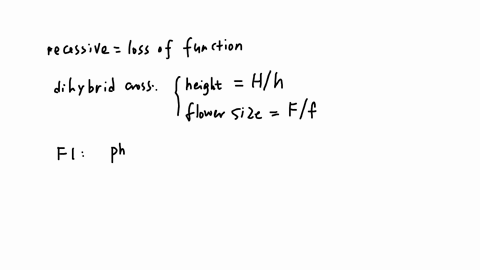 recessive = loss of function
dihybrid cross: { height = H/h
flower size = F/f
F1: ph